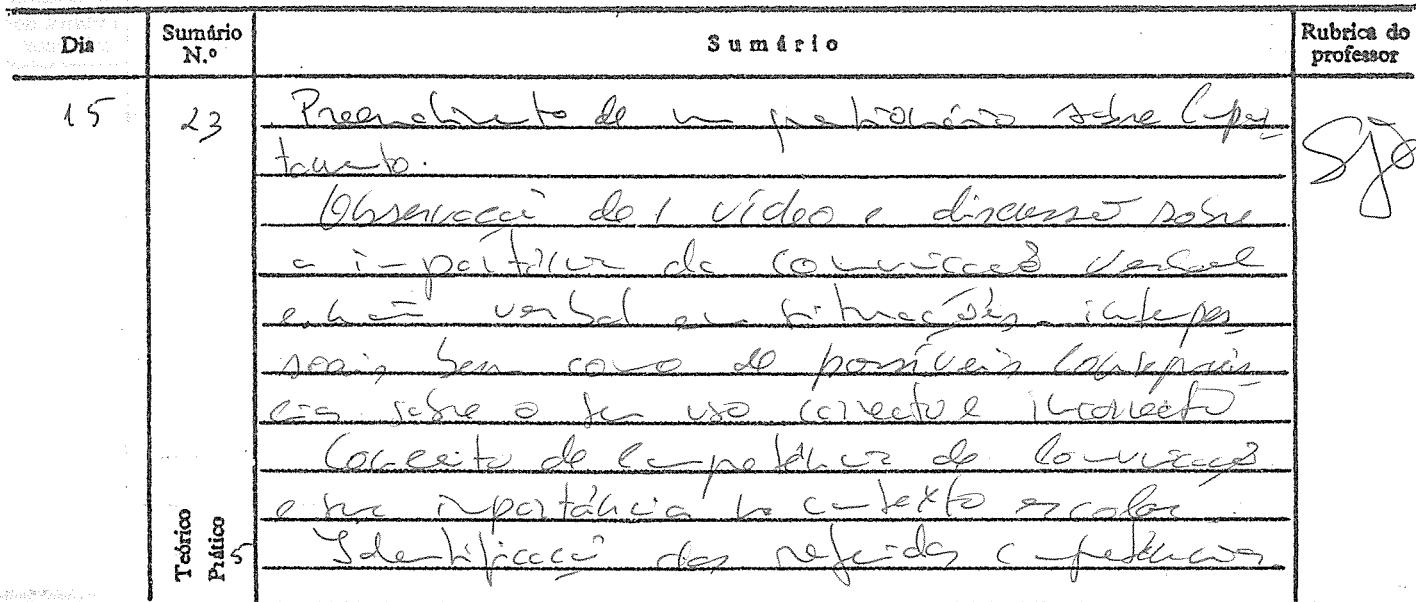 Dia Sumário N.º Sumário Rubrica do professor
15 23 Preenchimento de um questionário sobre Compor-
tamento.
Observação de 1 vídeo e discussão sobre
a importância da comunicação verbal
e não verbal em situações interpes
soais bem como de possíveis consequên
cias sobre o seu uso correcto e incorrecto
Conceito de Competência de Comunicação
e sua importância no contexto escolar.
Teórico
Prático 5 Identificação das referidas competências